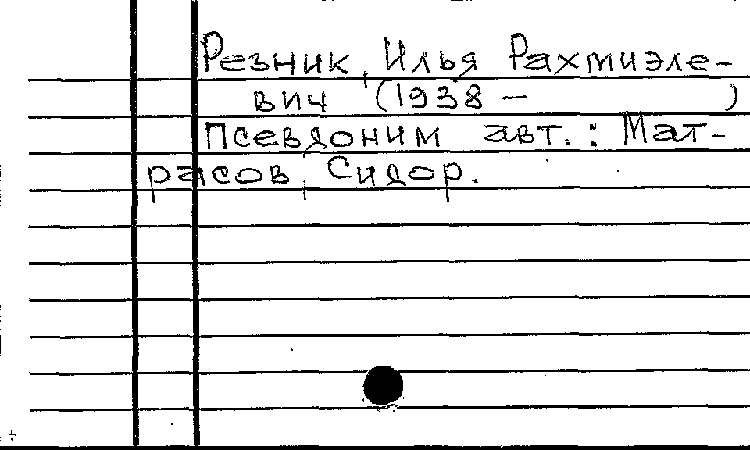 Резник, Илья Рахмиэле-
вич (1938 – )
Псевдоним авт.: Мат-
расов, Сидор.